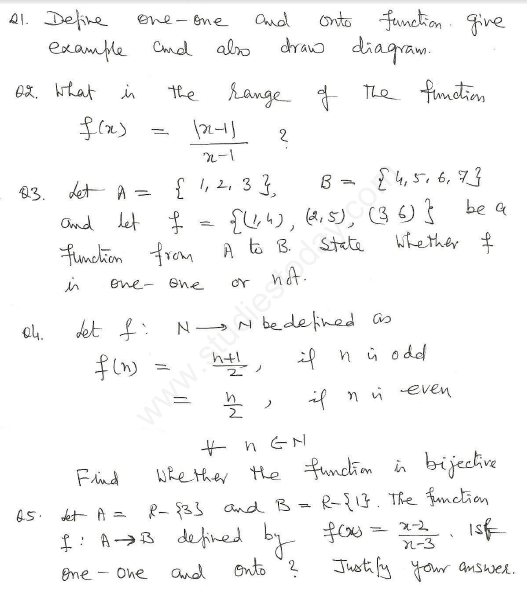 Q1. Define one-one and onto function. give
example and also draw diagram.
Q2. What is the range of the function
f(x) = |x-1| / x-1 ?
Q3. Let A = { 1, 2, 3 }, B = { 4, 5, 6, 7 }
and let f = {(1,4), (2,5), (3 6)} be a
function from A to B. State whether f
is one-one or not.
Q4. Let f : N → N be defined as
f(n) = n+1/2, if n is odd
= n/2, if n is even
∀ n ∈ N
Find whether the function is bijective
Q5. Let A = R-{3} and B = R-{1}. The function
f : A → B defined by f(x) = x-2/x-3. Is f
one-one and onto ? Justify your answer.
www.studiestoday.com